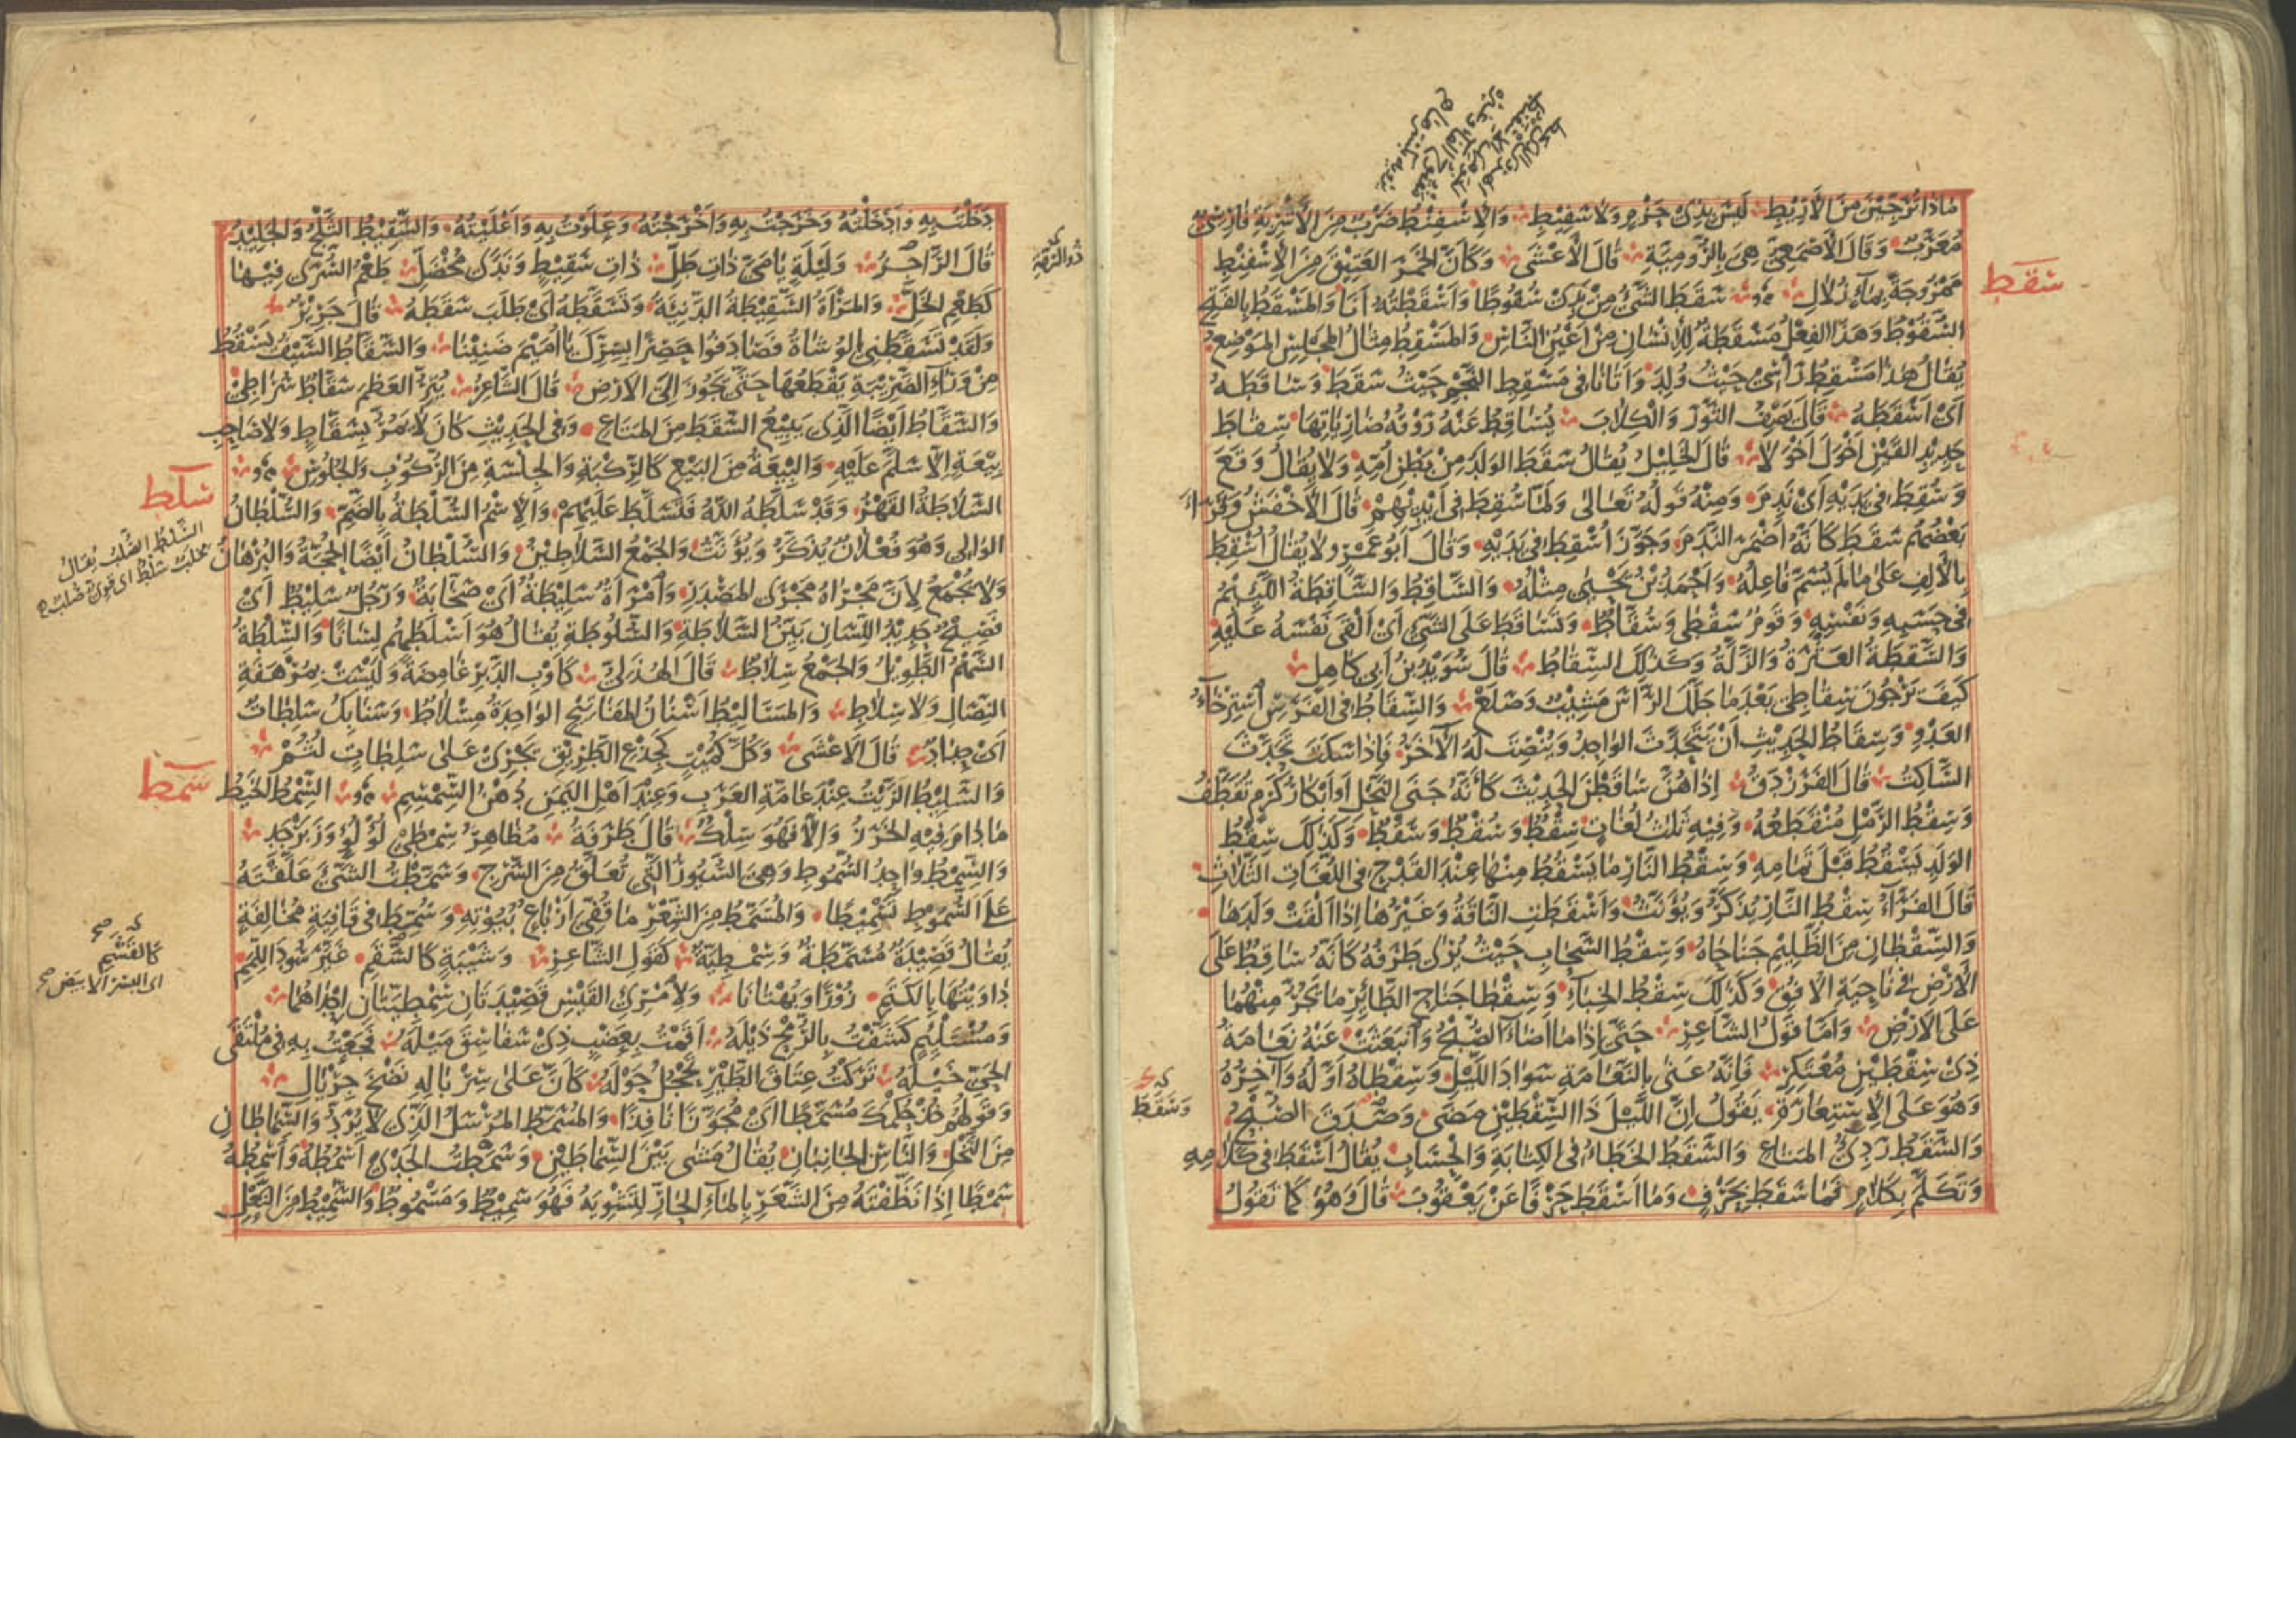 مَاذَا تُرَجِّيْنَ مِنَ الْأَرِيْطِ لَيْسَ بِذِيْ حَزْمٍ وَلَا سَفِيْطِ وَالْإِسْفِنْطُ ضَرْبٌ مِنَ الْأَشْرِبَةِ فَارِسِيٌّ
مُعَرَّبٌ وَقَالَ الْأَصْمَعِيُّ هِيَ بِالرُّوْمِيَّةِ قَالَ الْأَعْشَى وَكَأَنَّ الْخَمْرَ الْعَتِيْقَ مِنَ الْإِسْفِنْطِ
مَمْزُوْجَةً بِمَاءٍ زُلَالِ سَقَطَ الشَّيْءُ مِنْ يَدِيْ سُقُوْطًا وَأَسْقَطْتُهُ أَنَا وَالْمَسْقَطُ بِالْفَتْحِ
سقط
السُّقُوْطُ وَهَذَا الْفِعْلُ مَسْقَطَةٌ لِلْإِنْسَانِ مِنْ أَعْيُنِ النَّاسِ وَالْمَسْقِطُ مِثَالُ الْمَجْلِسِ الْمَوْضِعُ
يُقَالُ هٰذَا مَسْقِطُ رَأْسِيْ حَيْثُ وُلِدَ وَأَتَانَا فِي مَسْقِطِ النَّجْمِ حَيْثُ سَقَطَ وَسَاقَطَهُ
أَيْ أَسْقَطَهُ قَالَ يَصِفُ الثَّوْرَ وَالْكِلَابَ يُسَاقِطُ عَنْهُ رَوْقُهُ ضَارِيَاتِهَا سِقَاطَ
حَدِيْدِ الْقَيْنِ أَخْوَلَ أَخْوَلَا قَالَ الْخَلِيْلُ يُقَالُ سَقَطَ الْوَلَدُ مِنْ بَطْنِ أُمِّهِ وَلَا يُقَالُ وَقَعَ
وَسُقِطَ فِي يَدَيْهِ أَيْ نَدِمَ وَمِنْهُ قَوْلُهُ تَعَالَى وَلَمَّا سُقِطَ فِي أَيْدِيْهِمْ قَالَ الْأَخْفَشُ وَقَرَأَ
بَعْضُهُمْ سَقَطَ كَأَنَّهُ أَضْمَرَ النَّدَمَ وَجَوَّزَ أُسْقِطَ فِي يَدَيْهِ وَقَالَ أَبُو عَمْرٍو لَا يُقَالُ أُسْقِطَ
بِالْأَلِفِ عَلَى مَا لَمْ يُسَمَّ فَاعِلُهُ وَأَحْمَدُ بْنُ يَحْيَى مِثْلَهُ وَالسَّاقِطُ وَالسَّاقِطَةُ اللَّئِيْمُ
فِي حَسَبِهِ وَنَفْسِهِ وَقَوْمٌ سَقْطَى وَسُقَّاطٌ وَتَسَاقَطَ عَلَى الشَّيْءِ أَيْ أَلْقَى نَفْسَهُ عَلَيْهِ
وَالسَّقْطَةُ الْعَثْرَةُ وَالزَّلَّةُ وَكَذٰلِكَ السِّقَاطُ قَالَ سُوَيْدُ بْنُ أَبِي كَاهِلٍ
كَيْفَ تَرْجُوْنَ سِقَاطِيْ بَعْدَمَا جَلَّلَ الرَّأْسَ مَشِيْبٌ وَصَلَعْ وَالسِّقَاطُ فِي الْفَرَسِ اسْتِرْخَاءُ
الْعَدْوِ وَسِقَاطُ الْحَدِيْثِ أَنْ يَتَحَدَّثَ الْوَاحِدُ وَيُنْصِتَ لَهُ الْآخَرُ فَإِذَا سَكَتَ تَحَدَّثَ
السَّاكِتُ قَالَ الْفَرَزْدَقُ إِذَا هُنَّ سَاقَطْنَ الْحَدِيْثَ كَأَنَّهُ جَنَى النَّحْلِ أَوْ أَبْكَارُ كَرْمٍ تُقَطَّفُ
وَسِقْطُ الرَّمْلِ مُنْقَطَعُهُ وَفِيْهِ ثَلَثُ لُغَاتٍ سِقْطٌ وَسُقْطٌ وَسَقْطٌ وَكَذٰلِكَ سِقْطُ
الْوَلَدِ يَسْقُطُ قَبْلَ تَمَامِهِ وَسِقْطُ النَّارِ مَا يَسْقُطُ مِنْهَا عِنْدَ الْقَدْحِ فِي اللُّغَاتِ الثَّلَاثِ
قَالَ الْفَرَّاءُ سِقْطُ النَّارِ يُذَكَّرُ وَيُؤَنَّثُ وَأَسْقَطَتِ النَّاقَةُ وَغَيْرُهَا إِذَا أَلْقَتْ وَلَدَهَا
وَالسِّقْطَانِ مِنَ الظَّلِيْمِ جَنَاحَاهُ وَسِقْطُ السَّحَابِ حَيْثُ يُرَى طَرَفُهُ كَأَنَّهُ سَاقِطٌ عَلَى
الْأَرْضِ فِي نَاحِيَةِ الْأُفُقِ وَكَذٰلِكَ سِقْطُ الْخِبَاءِ وَسِقْطَا جَنَاحِ الطَّائِرِ مَا يَجُرُّ مِنْهُمَا
عَلَى الْأَرْضِ وَأَمَّا قَوْلُ الشَّاعِرِ حَتَّى إِذَا مَا أَضَاءَ الصُّبْحُ وَانْبَعَثَتْ عَنْهُ نَعَامَةُ
ذِيْ سِقْطَيْنِ مُعْتَكِرِ فَإِنَّهُ عَنَى بِالنَّعَامَةِ سَوَادَ اللَّيْلِ وَسِقْطَاهُ أَوَّلُهُ وَآخِرُهُ
وَهُوَ عَلَى الْاِسْتِعَارَةِ يَقُوْلُ إِنَّ اللَّيْلَ ذَا السِّقْطَيْنِ مَضَى وَصَدَقَ الصُّبْحُ
وَالسَّقَطُ رَدِيُّ الْمَتَاعِ وَالسَّقَطُ الْخَطَاءُ فِي الْكِتَابَةِ وَالْحِسَابِ يُقَالُ أَسْقَطَ فِي كَلَامِهِ
وَتَكَلَّمَ بِكَلَامٍ فَمَا سَقَطَ بِحَرْفٍ وَمَا أَسْقَطَ حَرْفًا عَنْ يَعْقُوْبَ قَالَ وَهُوَ كَمَا تَقُوْلُ
وَسَقَطَ
دَخَلْتُ بِهِ وَأَدْخَلْتُهُ وَخَرَجْتُ بِهِ وَأَخْرَجْتُهُ وَعَلَوْتُ بِهِ وَأَعْلَيْتُهُ وَالسَّقِيْطُ الثَّلْجُ وَالْجَلِيْدُ
قَالَ الرَّاجِزُ وَلَيْلَةٍ يَا مَيَّ ذَاتِ طَلِّ ذَاتِ سَقِيْطٍ وَنَدًى مُخْضَلِّ طَعْمُ السُّرَى فِيْهَا
ذو الرمة
كَطَعْمِ الْخَلِّ وَالْمَرْأَةُ السَّقِيْطَةُ الدَّنِيَّةُ وَتَسَقَّطَهُ أَيْ طَلَبَ سَقَطَهُ قَالَ جَرِيْرٌ
وَلَقَدْ تَسَقَّطَنِي الْوُشَاةُ فَصَادَفُوا حَصِرًا بِسِرِّكِ يَا أُمَيْمَ ضَنِيْنَا وَالسَّقَّاطُ السَّيْفُ يَسْقُطُ
مِنْ وَرَاءِ الضَّرِيْبَةِ يَقْطَعُهَا حَتَّى يَجُوْزَ إِلَى الْأَرْضِ قَالَ الشَّاعِرُ يُتِرُّ الْعَظْمَ سَقَّاطٌ سُرَاطِيْ
وَالسَّقَّاطُ أَيْضًا الَّذِي يَبِيْعُ السَّقَطَ مِنَ الْمَتَاعِ وَفِي الْحَدِيْثِ كَانَ لَا يَمُرُّ بِسَقَّاطٍ وَلَا صَاحِبِ
بِيْعَةٍ إِلَّا سَلَّمَ عَلَيْهِ وَالْبِيْعَةُ مِنَ الْبَيْعِ كَالرِّكْبَةِ وَالْجِلْسَةِ مِنَ الرُّكُوْبِ وَالْجُلُوْسِ
سلط
السَّلَاطَةُ الْقَهْرُ وَقَدْ سَلَّطَهُ اللّٰهُ فَتَسَلَّطَ عَلَيْهِمْ وَالْاِسْمُ السُّلْطَةُ بِالضَّمِّ وَالسُّلْطَانُ
السَّلْطُ الصُّلْبُ يُقَالُ
الْوَالِي وَهُوَ فُعْلَانٌ يُذَكَّرُ وَيُؤَنَّثُ وَالْجَمْعُ السَّلَاطِيْنُ وَالسُّلْطَانُ أَيْضًا الْحُجَّةُ وَالْبُرْهَانُ
وَلَا يُجْمَعُ لِأَنَّ مَجْرَاهُ مَجْرَى الْمَصْدَرِ وَامْرَأَةٌ سَلِيْطَةٌ أَيْ صَخَّابَةٌ وَرَجُلٌ سَلِيْطٌ أَيْ
فَصِيْحٌ حَدِيْدُ اللِّسَانِ بَيِّنُ السَّلَاطَةِ وَالسُّلُوْطَةِ يُقَالُ هُوَ أَسْلَطُهُمْ لِسَانًا وَالسِّلْطَةُ
السَّهْمُ الطَّوِيْلُ وَالْجَمْعُ سِلَاطٌ قَالَ الْهُذَلِيُّ كَأَوْبِ الدَّبْرِ غَامِضَةً وَلَيْسَتْ بِمُرْهَفَةِ
النِّصَالِ وَلَا سِلَاطِ وَالْمَسَالِيْطُ أَسْنَانُ الْمَفَاتِيْحِ الْوَاحِدَةُ مِسْلَاطٌ وَسَنَابِكُ سَلِطَاتٌ
أَيْ حِدَادٌ قَالَ الْأَعْشَى وَكُلِّ كُمَيْتٍ كَجِذْعِ الطَّرِيْقِ يَجْرِيْ عَلَى سَلِطَاتٍ لُثُمْ
وَالسَّلِيْطُ الزَّيْتُ عِنْدَ عَامَّةِ الْعَرَبِ وَعِنْدَ أَهْلِ الْيَمَنِ دُهْنُ السِّمْسِمِ السِّمْطُ الْخَيْطُ
سمط
مَا دَامَ فِيْهِ الْخَرَزُ وَإِلَّا فَهُوَ سِلْكٌ قَالَ طَرَفَةُ مُظَاهِرُ سِمْطَيْ لُؤْلُؤٍ وَزَبَرْجَدِ
وَالسِّمْطُ وَاحِدُ السُّمُوْطِ وَهِيَ السُّيُوْرُ الَّتِي تُعَلَّقُ مِنَ السَّرْجِ وَسَمَّطْتُ الشَّيْءَ عَلَّقْتُهُ
عَلَى السُّمُوْطِ تَسْمِيْطًا وَالْمُسَمَّطُ مِنَ الشِّعْرِ مَا قُفِّيَ أَرْبَاعُ بُيُوْتِهِ وَسُمِّطَ فِي قَافِيَةٍ مُخَالِفَةٍ
يُقَالُ قَصِيْدَةٌ مُسَمَّطَةٌ وَسِمْطِيَّةٌ كَقَوْلِ الشَّاعِرِ وَشَيْبَةٍ كَالشَّقَمِ غَيَّرَ سُوْدَ اللِّمَمِ
كَالْقَشَمِ
اى البسر الابيض
دَاوَيْتُهَا بِالْكَتَمِ زُوْرًا وَبُهْتَانَا وَلِامْرِئِ الْقَيْسِ قَصِيْدَتَانِ سِمْطِيَّتَانِ إِحْدَاهُمَا
وَمُسْتَلْئِمٍ كَشَفْتُ بِالرُّمْحِ ذَيْلَهُ أَقَمْتُ بِعَضْبٍ ذِيْ سَفَاسِقَ مَيْلَهُ فَجَعْتُ بِهِ فِي مُلْتَقَى
الْحَيِّ خَيْلَهُ تَرَكْتُ عِتَاقَ الطَّيْرِ تَحْجُلُ حَوْلَهُ كَأَنَّ عَلَى سِرْبَالِهِ نَضْحَ جِرْيَالِ
وَقَوْلُهُمْ خُذْ حُكْمَكَ مُسَمَّطًا أَيْ مُجَوَّزًا نَافِذًا وَالْمُسَمَّطُ الْمُرْسَلُ الَّذِي لَا يُرَدُّ وَالسِّمَاطَانِ
مِنَ النَّخْلِ وَالنَّاسِ الْجَانِبَانِ يُقَالُ مَشَى بَيْنَ السِّمَاطَيْنِ وَسَمَطْتُ الْجَدْيَ أَسْمُطُهُ وَأَسْمِطُهُ
سَمْطًا إِذَا نَظَّفْتَهُ مِنَ الشَّعَرِ بِالْمَاءِ الْحَارِّ لِتَشْوِيَهُ فَهُوَ سَمِيْطٌ وَمَسْمُوْطٌ وَالسَّمِيْطُ مِنَ النَّعْلِ